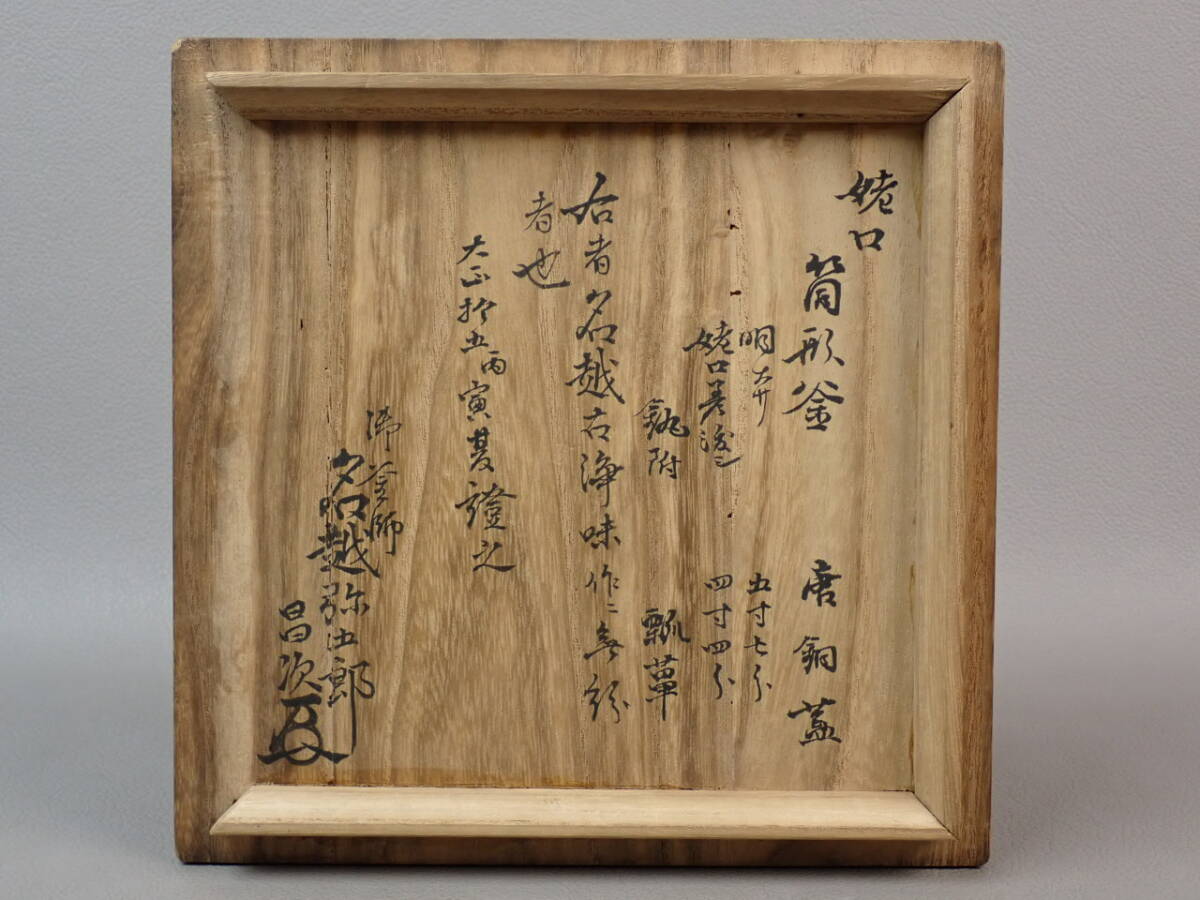 姥口
筒形釜 唐銅蓋
明 大サ 五寸七分
姥口差渡シ 四寸四分
鈨附 瓢箪
右者名越古浄味作ニ無紛
者也
大正拾五丙寅夏 證之
御釜師
名越弥五郎
昌次